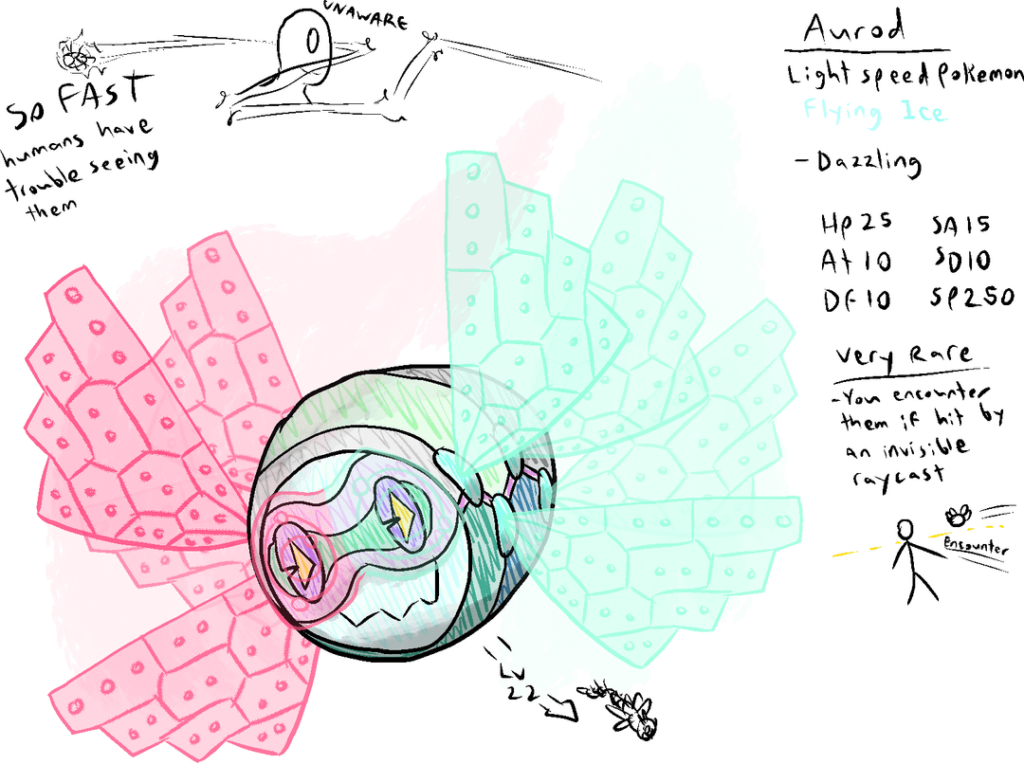 UNAWARE
SO FAST
humans have
trouble seeing
them
Aurod
Light speed Pokemon
Flying Ice
- Dazzling
HP 25 SA 15
At 10 SD 10
DF 10 SP 250
Very Rare
- You encounter
them if hit by
an invisible
raycast
Encounter
Lv
22